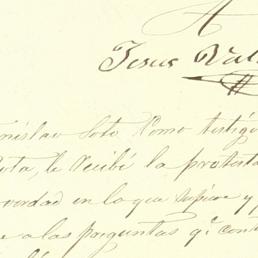 A
Jesus Val
nislao Soto Como testigo
ota, le recibí la protesta
verdad en lo que supiere y p
e a las preguntas qe. con